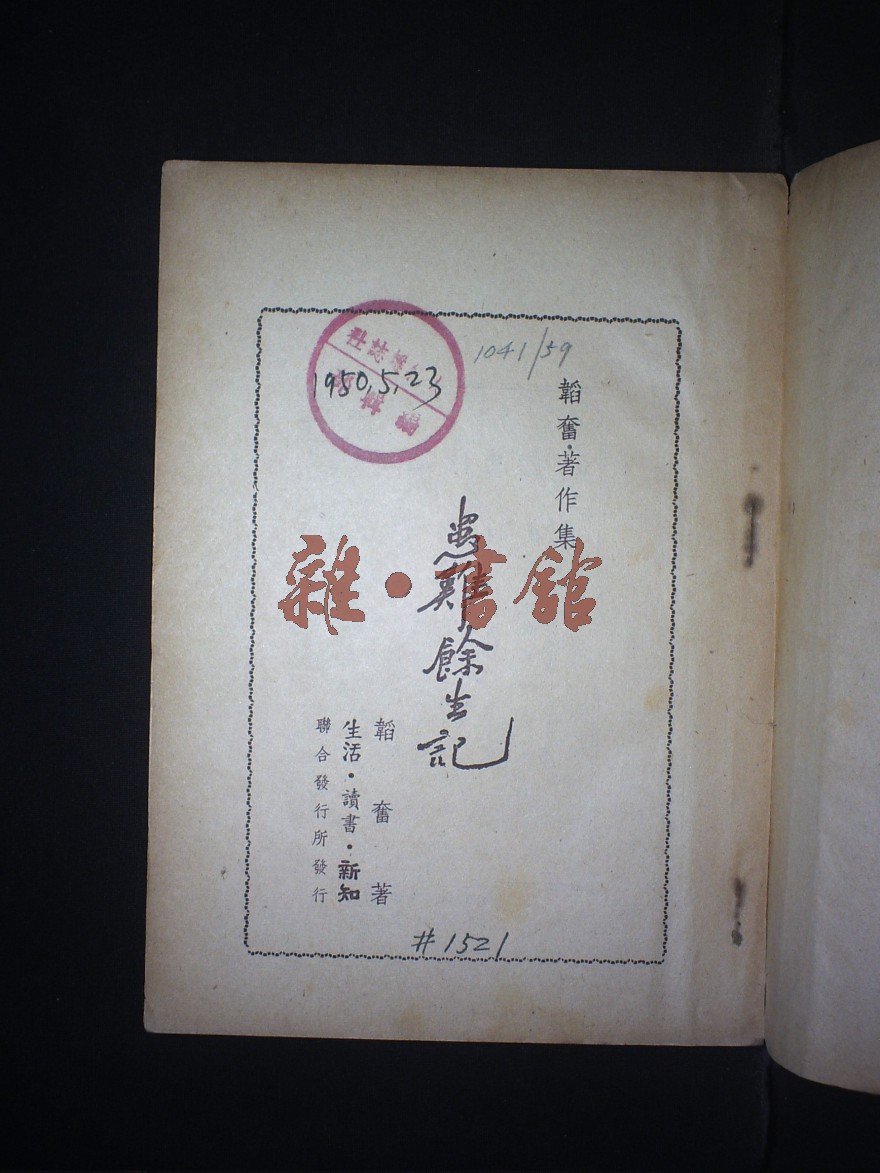 1041/59
韜奮·著作集
患難餘生記
韜奮著
生活·讀書·新知
聯合發行所發行
1950.5.23
#1521
雜·書舘